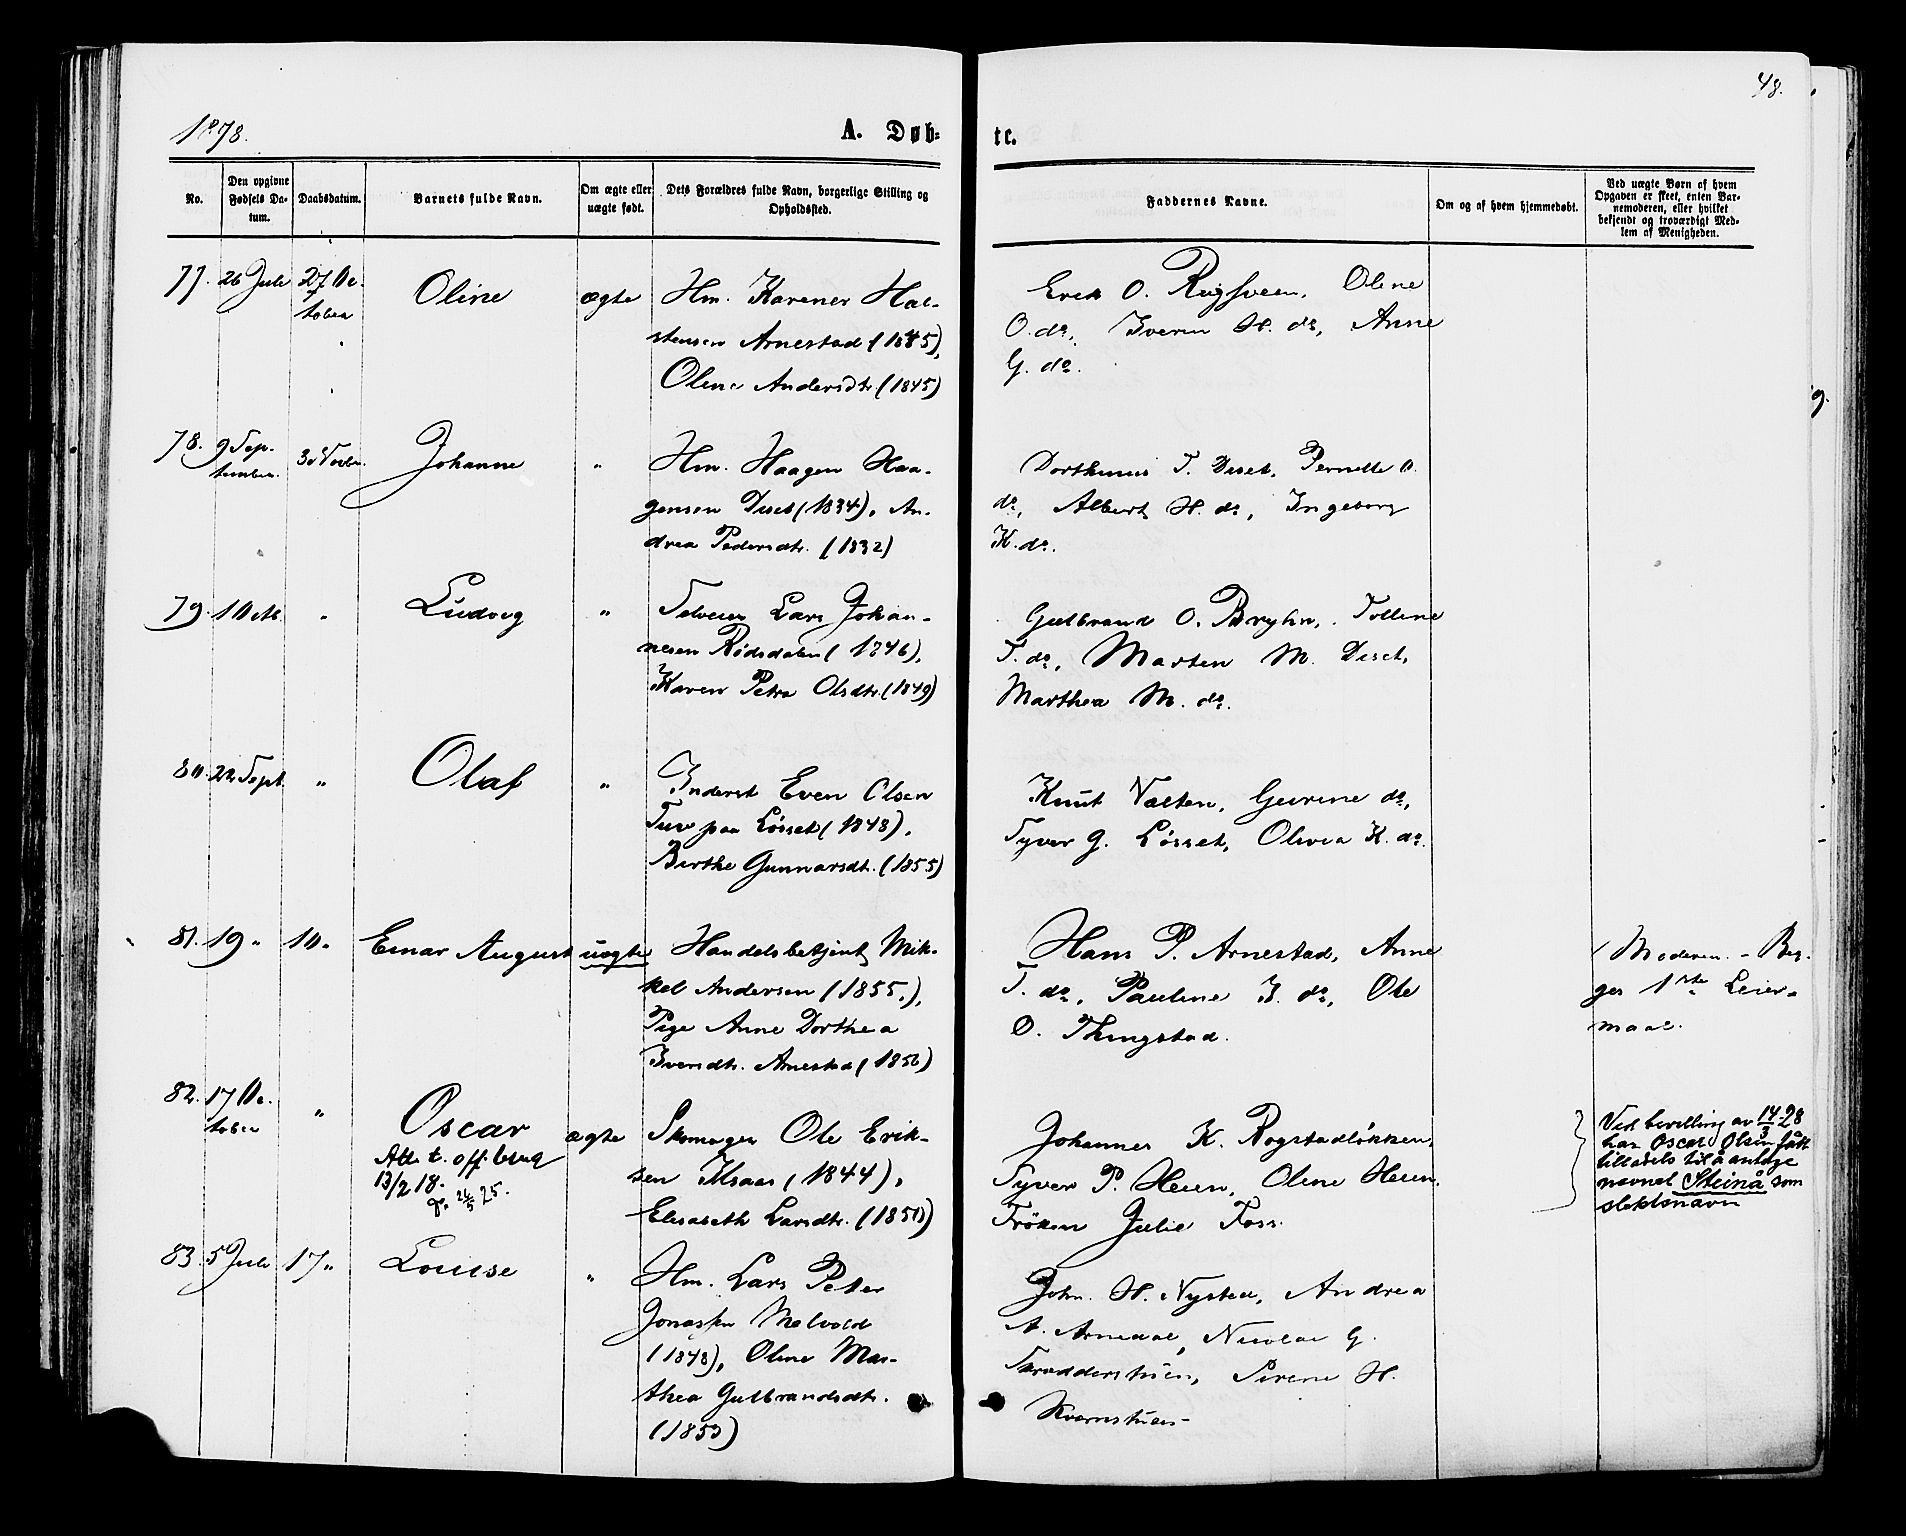 1878.
A. Døb-
te.
48.
No.
Den opgivne Fødsels Da-
tum.
Daabsdatum.
Barnets fulde Navn.
Om ægte eller uægte født.
Dets Forældres fulde Navn, borgerlige Stilling og Opholdssted.
Faddernes Navne.
Om og af hvem hjemmedøbt.
Ved uægte Børn af hvem
Opgaven er skeet, enten Bar-
nemoderen, eller hvilket
bekjendt og troværdigt Med-
lem af Menigheden.
77. 26 Juli 27 Oc-
tober
Oline
ægte
Hm. Karener Hal-
stensen Arnestad (1845),
Olene Andersdtr. (1845)
Erik O. Rugsveen, Olene
O. do, Iveren H. do, Anne
G. do.
78. 9 Sep-
tember. 3 Novbr.
Johanne
"
Hm. Haagen Haa-
gensen Diset (1834), An-
drea Pedersdtr. (1832)
Dorthinus T. Diset, Pernelle O.
do, Albert H. do, Ingeborg
K. do.
79. 1 Octb. "
Ludvig
"
Selveier Lars Johan-
nesen Rødsdalen (1846),
Karen Petra Olsdtr. (1849)
Gulbrand O. Bryhn, Tolline
T. do, Marten M. Diset,
Marthea M. do.
80. 22 Sept. "
Olaf
"
Inderst Even Olsen
Tuv paa Løsset (1848),
Birthe Gunnarsdtr. (1855)
Knut Valten, Gurine do,
Syver G. Løsset, Olivia K. do.
81. 19 " 10 "
Einar August
uægte
Handelsbetjent Mik-
kel Andersen (1855),
Pige Anne Dorthea
Iversdtr. Arnestad (1856)
Hans P. Arnestad, Anne
T. do, Pauline I. do, Ole
O. Thingstad.
Moderen. - Beg-
ges 1ste Leier-
maal.
82. 17 Oc-
tober "
Oscar
Att. t. off. brug
13/2 18.
do. 26/5 25.
ægte
Skomager Ole Erik-
sen Kraas (1844),
Elisabeth Larsdtr. (1850)
Johannes K. Rogstadløkken,
Syver P. Heien, Oline Heien,
Frøken Julie Foss.
Ved bevilling av 14/3-28
har Oscar Olsen fått
tillatels til å antage
navnet Steinå som
slektsnavn
83. 5 Juli 17 "
Louise
"
Hm. Lars Peter
Jonassen Melvold
(1848), Oline Mar-
thea Gulbrandsdtr.
(1853)
John H. Nysted, Andrea
A. Arnedal, Nicolai G.
Skradderstuen, Sirene H.
Kvernstuen-